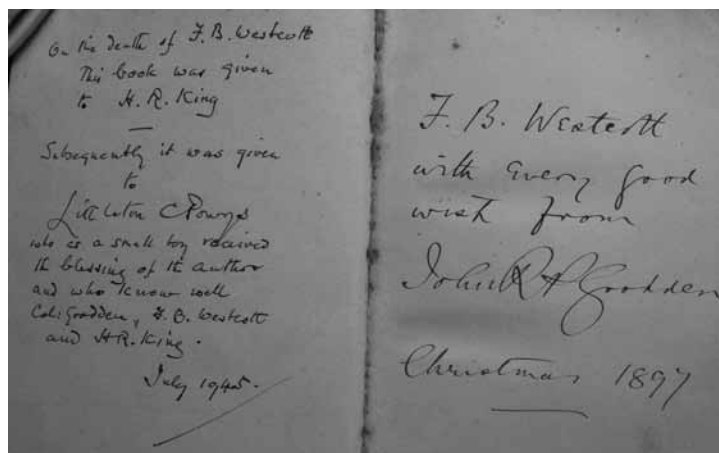 On the death of F. B. Westcott
This book was given
to H. R. King
Subsequently it was given
to
Littleton C Powys
who as a small boy received
the blessing of the author
and who knew well
Goodden, F. B. Westcott
and H R. King.
July 1945.
F. B. Westcott
with every good
wish from
John R P Goodden
Christmas 1897